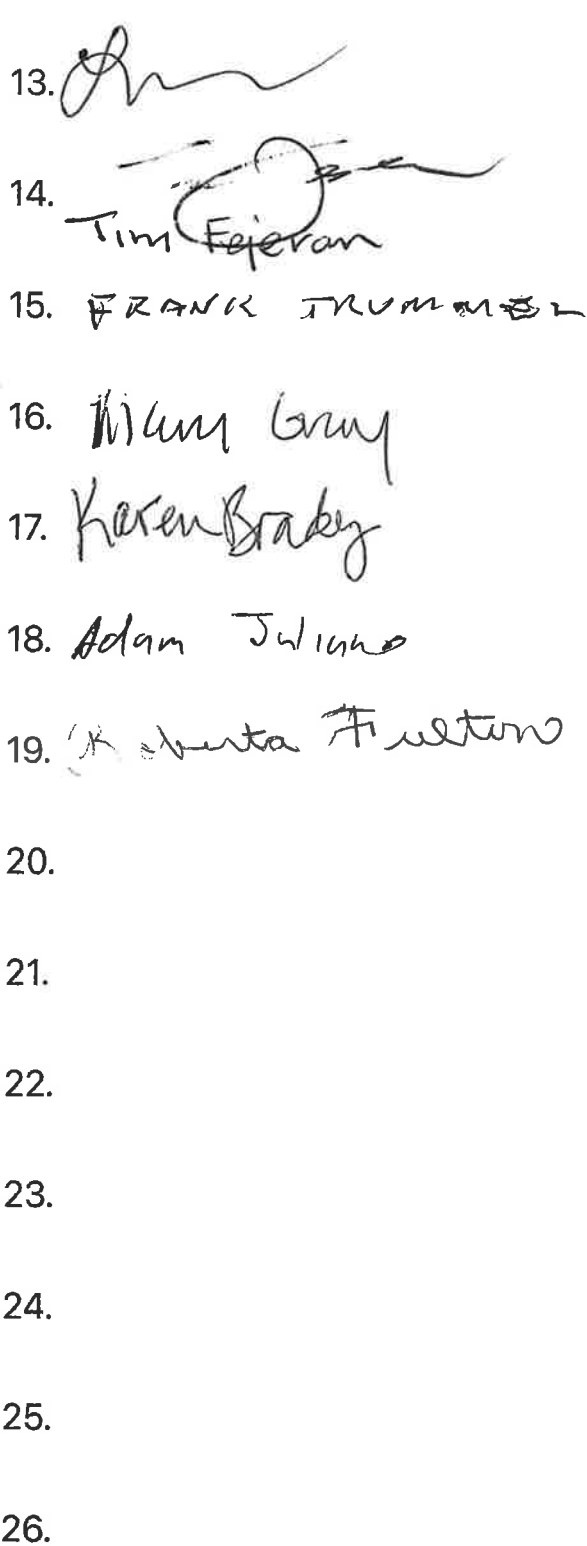 13.
14.
Tim Fejeran
15. FRANK TRUMMEL
16. Mary Gray
17. Karen Brady
18. Adam Juliano
19. Roberta Fulton
20.
21.
22.
23.
24.
25.
26.